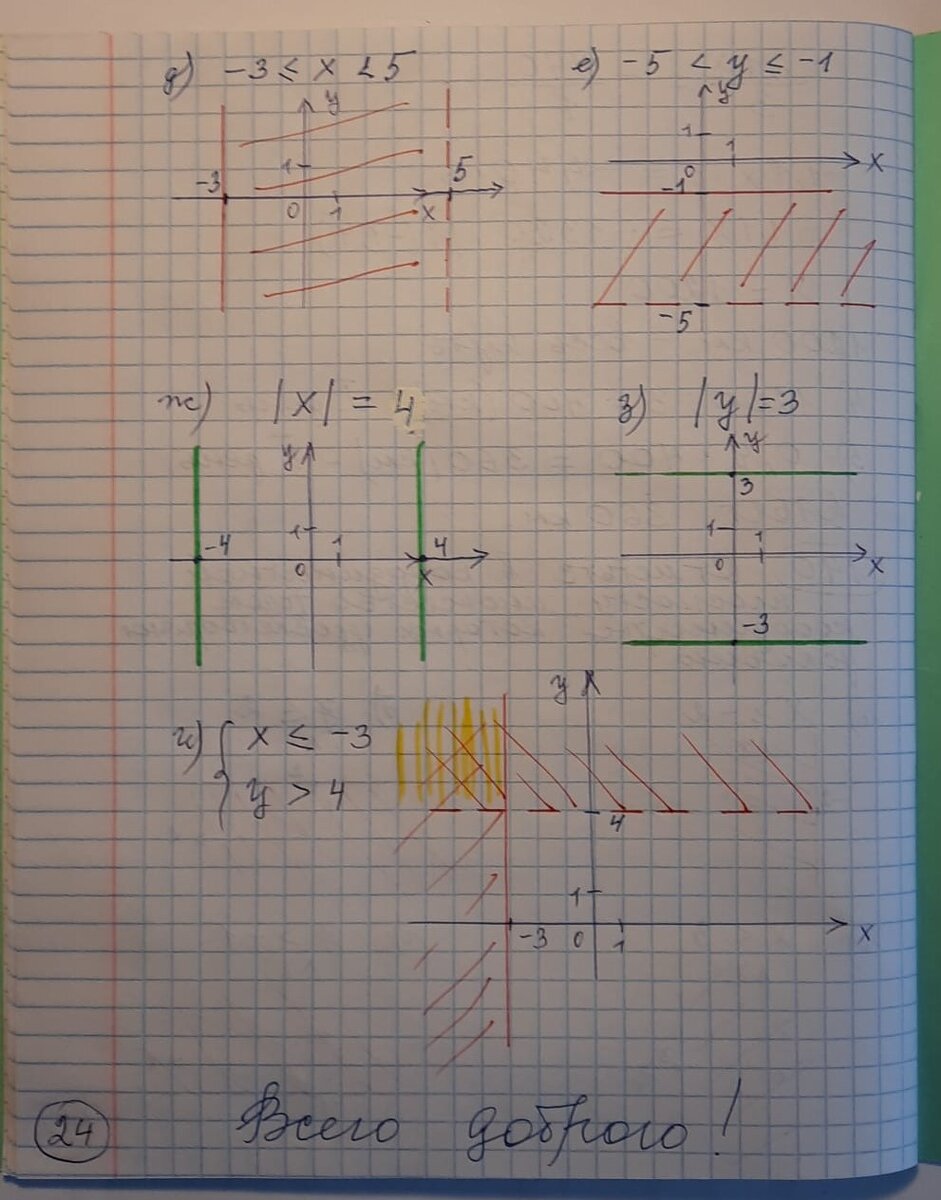 д) -3 ≤ x < 5
е) -5 < y ≤ -1
y
1
-3
0
1
x
5
y
1
1
0
x
-1
-5
ж) |x| = 4
з) |y|=3
y
1
-4
0
1
4
x
y
3
1
1
0
x
-3
и) { x ≤ -3
y > 4
y
4
1
-3
0
1
x
24
Всего доброго!